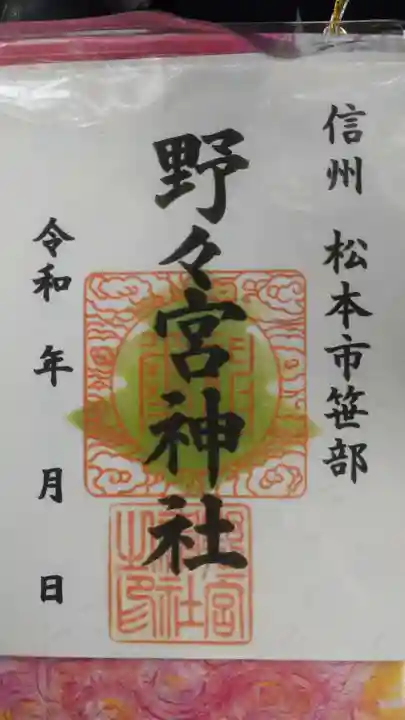 信州 松本市笹部
野々宮神社
令和 年 月 日